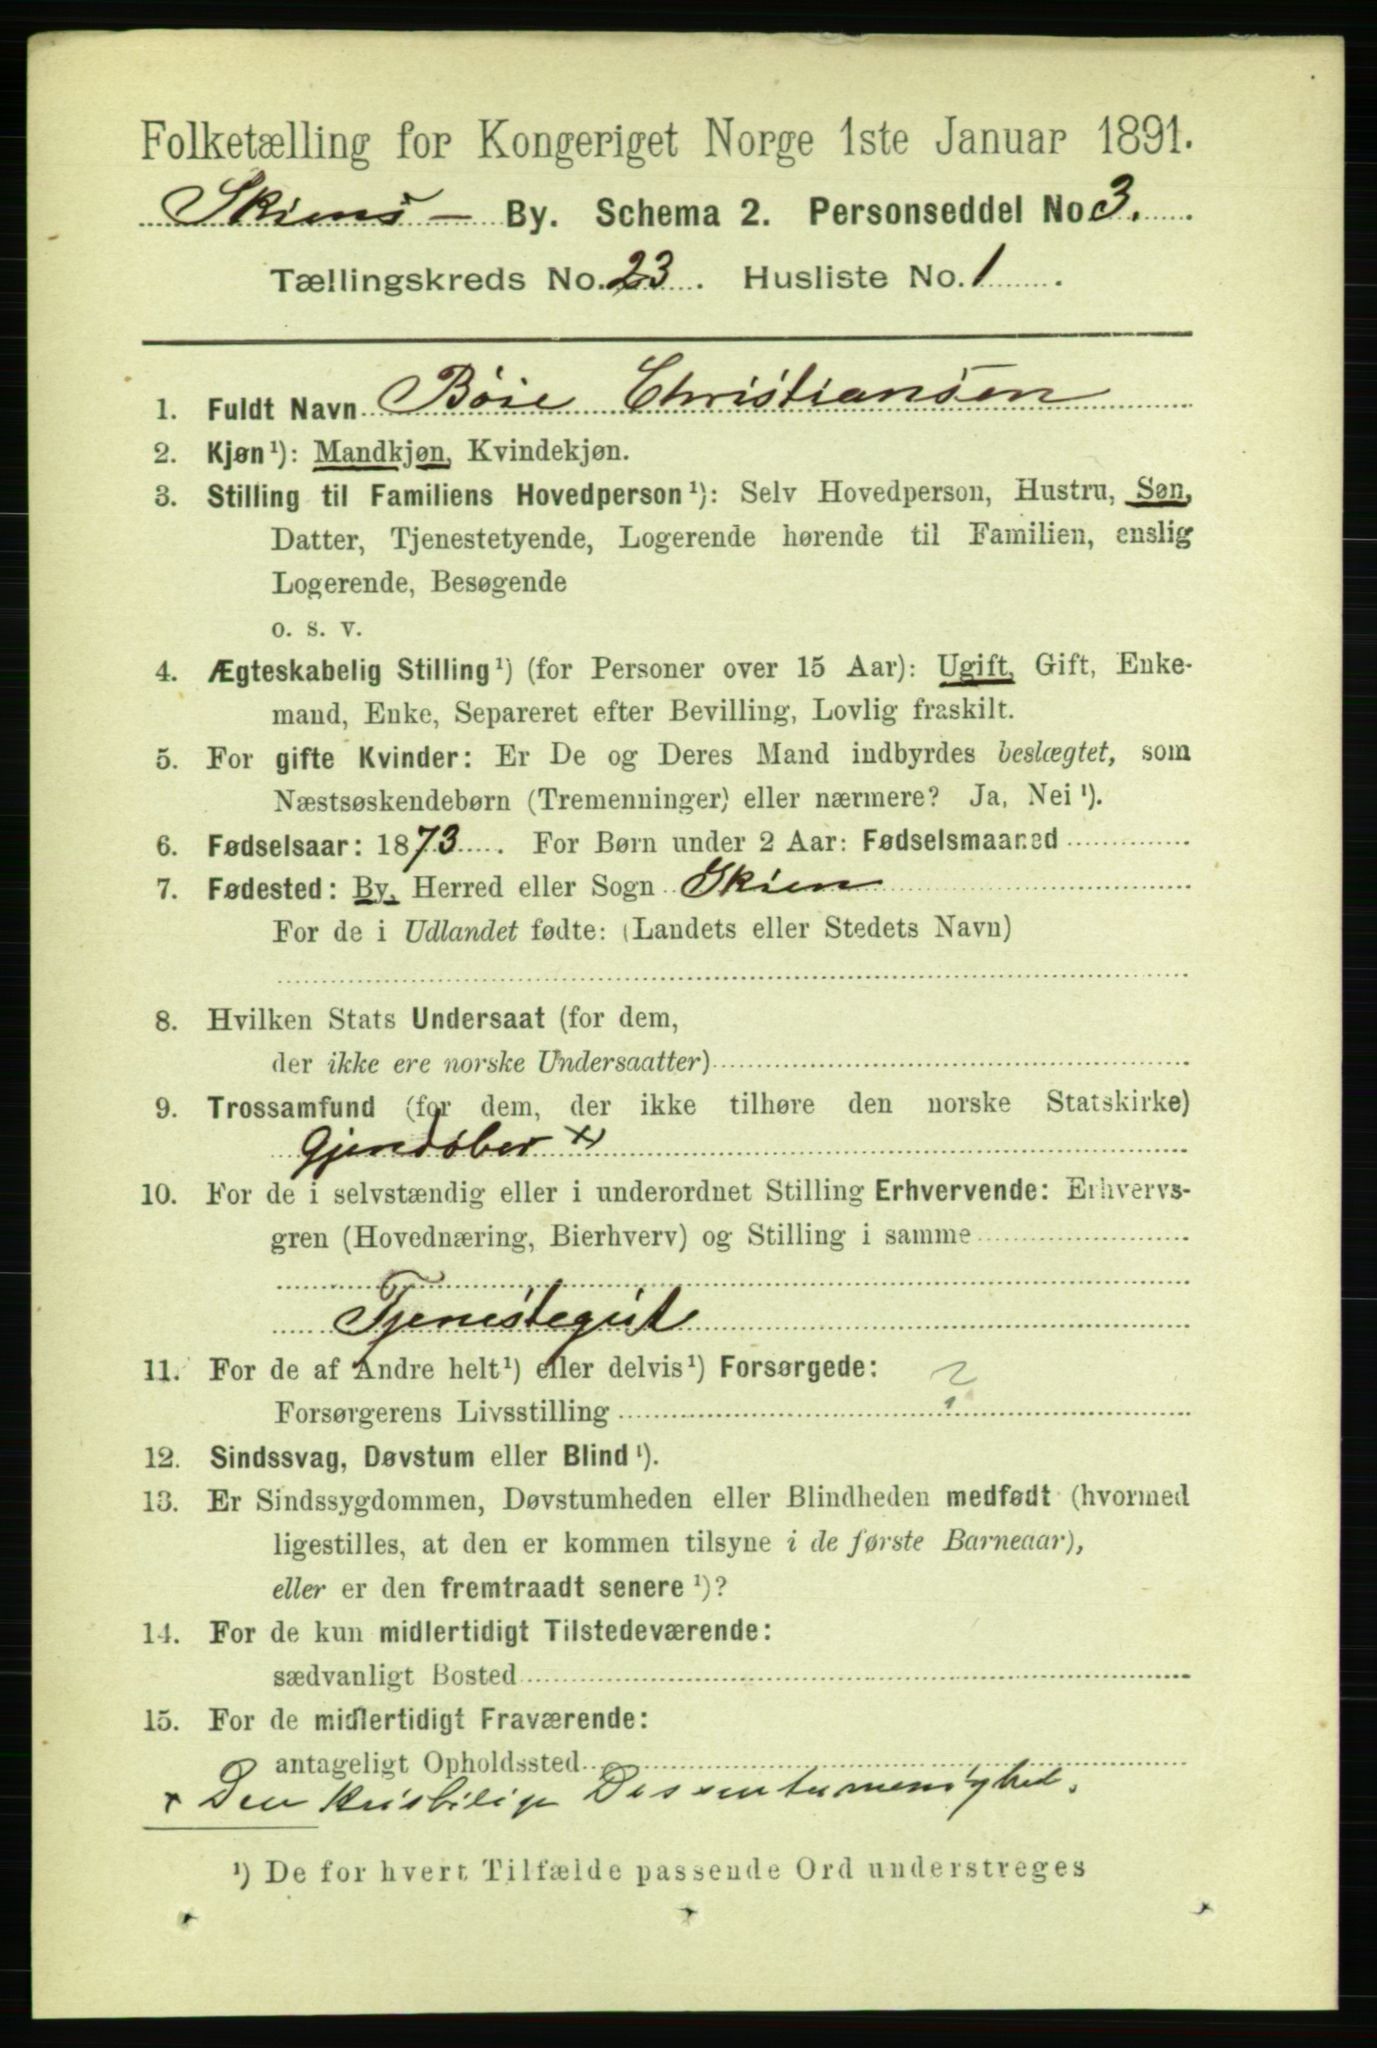 Folketælling for Kongeriget Norge 1ste Januar 1891.
Skiens - By. Schema 2. Personseddel No 3.
Tællingskreds No. 23. Husliste No. 1.
1. Fuldt Navn Böie Christiansen
2. Kjøn¹): Mandkjøn, Kvindekjøn.
3. Stilling til Familiens Hovedperson¹): Selv Hovedperson, Hustru, Søn,
Datter, Tjenestetyende, Logerende hørende til Familien, enslig
Logerende, Besøgende
o. s. v.
4. Ægteskabelig Stilling¹) (for Personer over 15 Aar): Ugift, Gift, Enke-
mand, Enke, Separeret efter Bevilling, Lovlig fraskilt.
5. For gifte Kvinder: Er De og Deres Mand indbyrdes beslægtet, som
Næstsøskendebørn (Tremenninger) eller nærmere? Ja, Nei¹).
6. Fødselsaar: 1873. For Børn under 2 Aar: Fødselsmaaned
7. Fødested: By, Herred eller Sogn Skien
For de i Udlandet fødte: (Landets eller Stedets Navn)
8. Hvilken Stats Undersaat (for dem,
der ikke ere norske Undersaatter)
9. Trossamfund (for dem, der ikke tilhøre den norske Statskirke)
Gjendöber x)
10. For de i selvstændig eller i underordnet Stilling Erhvervende: Erhvervs-
gren (Hovednæring, Bierhverv) og Stilling i samme
Tjenestegut
11. For de af Andre helt¹) eller delvis¹) Forsørgede:
Forsørgerens Livsstilling
12. Sindssvag, Døvstum eller Blind¹).
13. Er Sindssygdommen, Døvstumheden eller Blindheden medfødt (hvormed
ligestilles, at den er kommen tilsyne i de første Barneaar),
eller er den fremtraadt senere¹)?
14. For de kun midlertidigt Tilstedeværende:
sædvanligt Bosted
15. For de midlertidigt Fraværende:
antageligt Opholdssted
x Den Dissentermenighed.
¹) De for hvert Tilfælde passende Ord understreges